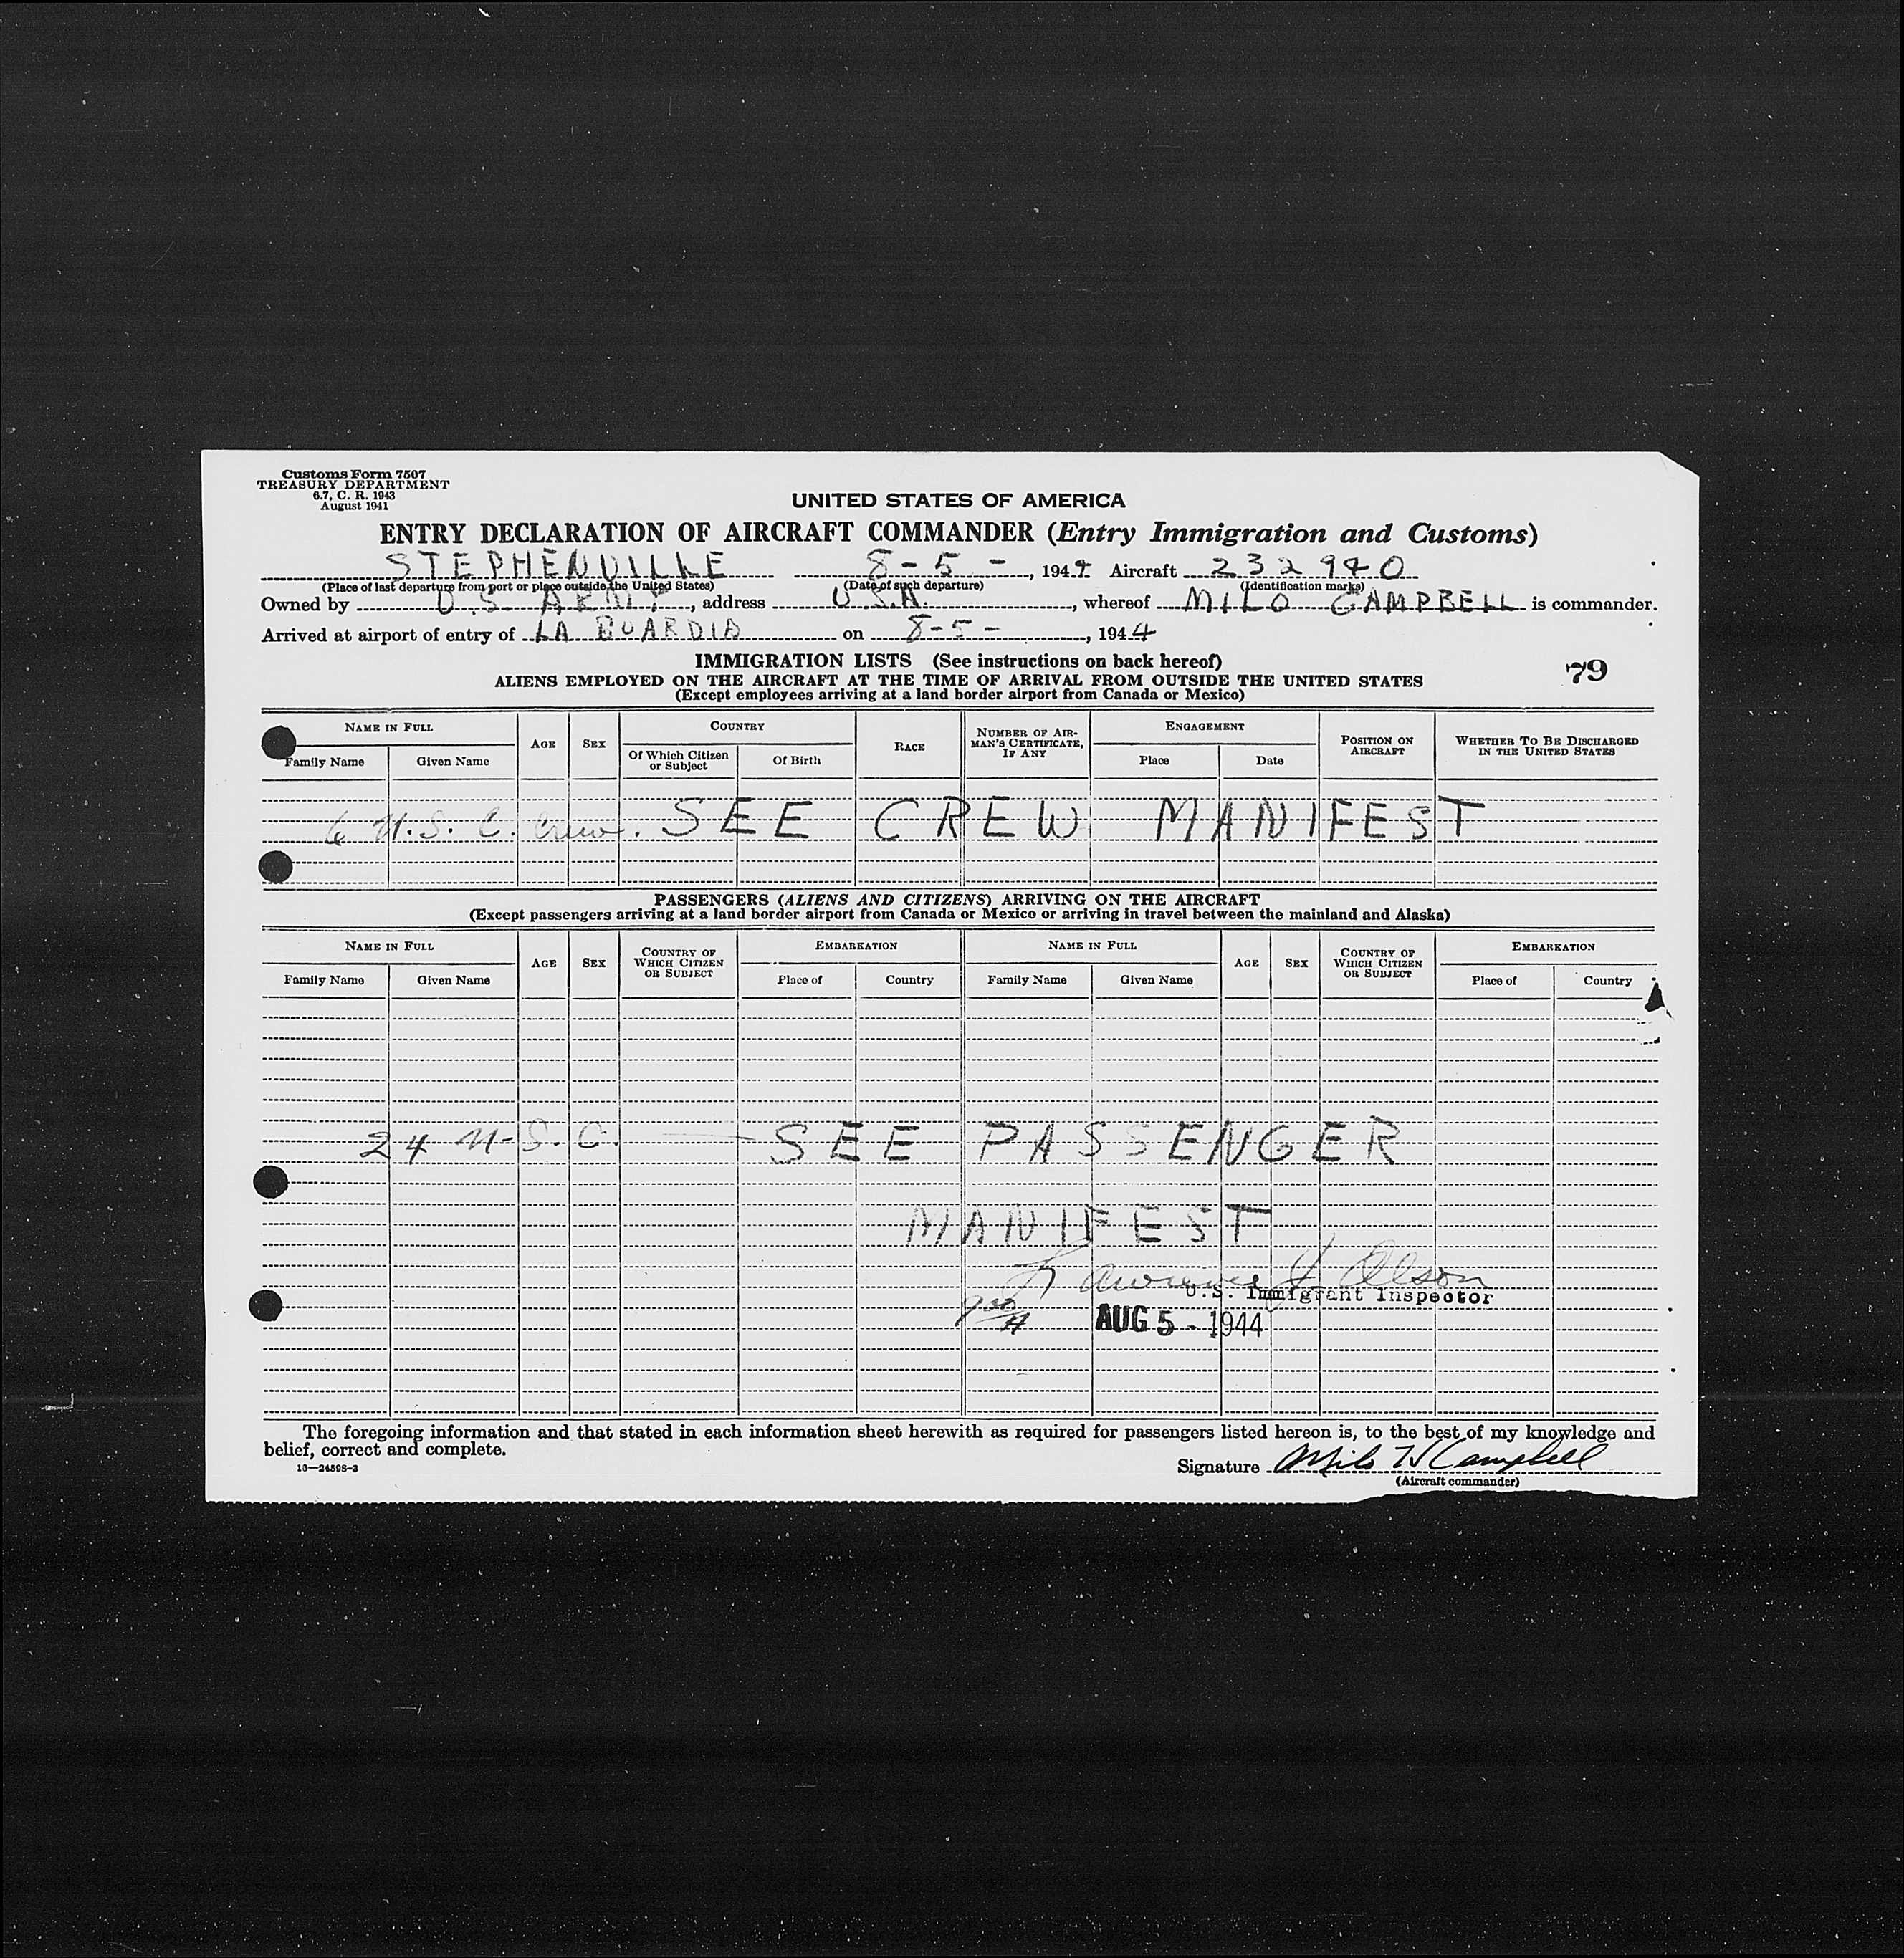 Customs Form 7507
TREASURY DEPARTMENT
6.7, C. R. 1943
August 1941
UNITED STATES OF AMERICA
ENTRY DECLARATION OF AIRCRAFT COMMANDER (Entry Immigration and Customs)
STEPHENVILLE 8-5-, 1944 Aircraft 232940
(Place of last departure from port or place outside the United States) (Date of such departure) (Identification marks)
Owned by U.S ARMY, address U.S.A., whereof MILO CAMPBELL is commander.
Arrived at airport of entry of LA GUARDIA on 8-5-, 1944
IMMIGRATION LISTS (See instructions on back hereof)
79
ALIENS EMPLOYED ON THE AIRCRAFT AT THE TIME OF ARRIVAL FROM OUTSIDE THE UNITED STATES
(Except employees arriving at a land border airport from Canada or Mexico)
NAME IN FULL AGE SEX COUNTRY RACE NUMBER OF AIRMAN'S CERTIFICATE, IF ANY ENGAGEMENT POSITION ON AIRCRAFT WHETHER TO BE DISCHARGED IN THE UNITED STATES
Family Name Given Name Of Which Citizen or Subject Of Birth Place Date
6 U.S.C. Crew. SEE CREW MANIFEST
PASSENGERS (ALIENS AND CITIZENS) ARRIVING ON THE AIRCRAFT
(Except passengers arriving at a land border airport from Canada or Mexico or arriving in travel between the mainland and Alaska)
NAME IN FULL AGE SEX COUNTRY OF WHICH CITIZEN OR SUBJECT EMBARKATION NAME IN FULL AGE SEX COUNTRY OF WHICH CITIZEN OR SUBJECT EMBARKATION
Family Name Given Name Place of Country Family Name Given Name Place of Country
24 U.S.C. — SEE PASSENGER
MANIFEST
Lawrence J Olson
U.S. Immigrant Inspector
AUG 5 - 1944
The foregoing information and that stated in each information sheet herewith as required for passengers listed hereon is, to the best of my knowledge and
belief, correct and complete.
16—24598-3
Signature Milo H Campbell
(Aircraft commander)